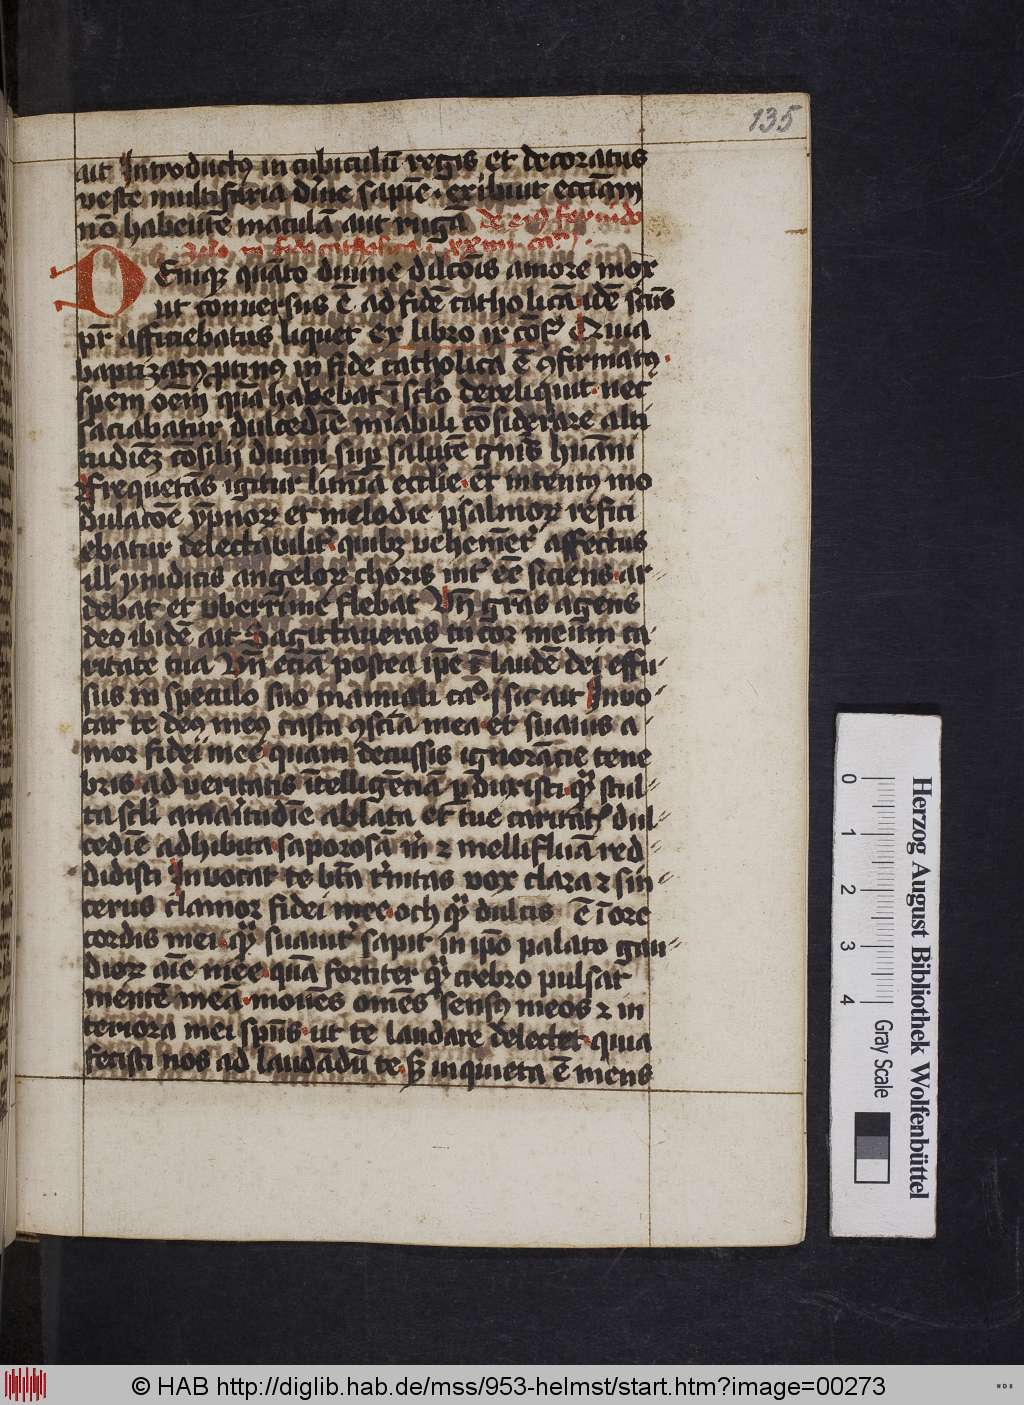 135
ait Introductꝰ in cubiculū regis et decoratus
veste multifaria diūe sapiē exibuit eccīam
nō habentē maculā aut rugā de eiꝰ feruido
zelo in fide catholica
DEniqꝫ quāto diuine dilcōis amore mox
ut conuersus ē ad fidē catholicā idē scūs
pr̄ afficiebatus liquet ex libro ix cōf Quia
baptizatꝰ ptinꝰ in fide catholica ē ꝯfirmatꝰ
spem oēm quā habebat ī sclō dereliquit nec
saciabatur dulcediē miābili cōsiderare alti
tudiēꝫ cōsilij diuini suꝑ salutē gn̄is hūani
Frequētās igitur limīa ecclīe et intentꝰ mo
dulacōe ypnoꝝ et melodie psalmoꝝ refici
ebatur delectabilitˀ quibꝫ vehemētˀ affectus
angeloꝝ choris intˀ eē siciens ar
debat et vberrime flebat Vn̄ grās agens
deo ibidē ait Sagittaueras tu cor meum ca
ritate tua Vn̄ eciā postea ipē ī laudē dei effu
sus in speculo suo manuali caº j sic ait Inuo
cat te deꝰ meꝰ casta ꝯsciā mea et suauis a
mor fidei mee quam decussis ignorācie tene
bris ad veritatis ītelligēciā ꝑduxisti stul
ta scli amaritudīe ablata et tue caritatˀ dul
cediē adhibita saporosā mˀ ⁊ mellifluā red
didisti Inuocat te btā tˀnitas vox clara ⁊ sin
cerus clamor fidei mee och dulcis ē ī ore
cordis mei suauitˀ sapit in ipō palato gau
dioꝝ aīe mee quā fortiter crebro pulsat
mentē meā mouēs omēs sensꝰ meos ⁊ in
teriora mei spūs ut te laudare delectet quia
fecisti nos ad laudādū te inquieta ē mens
Herzog August Bibliothek Wolfenbüttel
0 1 2 3 4 Gray Scale
© HAB http://diglib.hab.de/mss/953-helmst/start.htm?image=00273